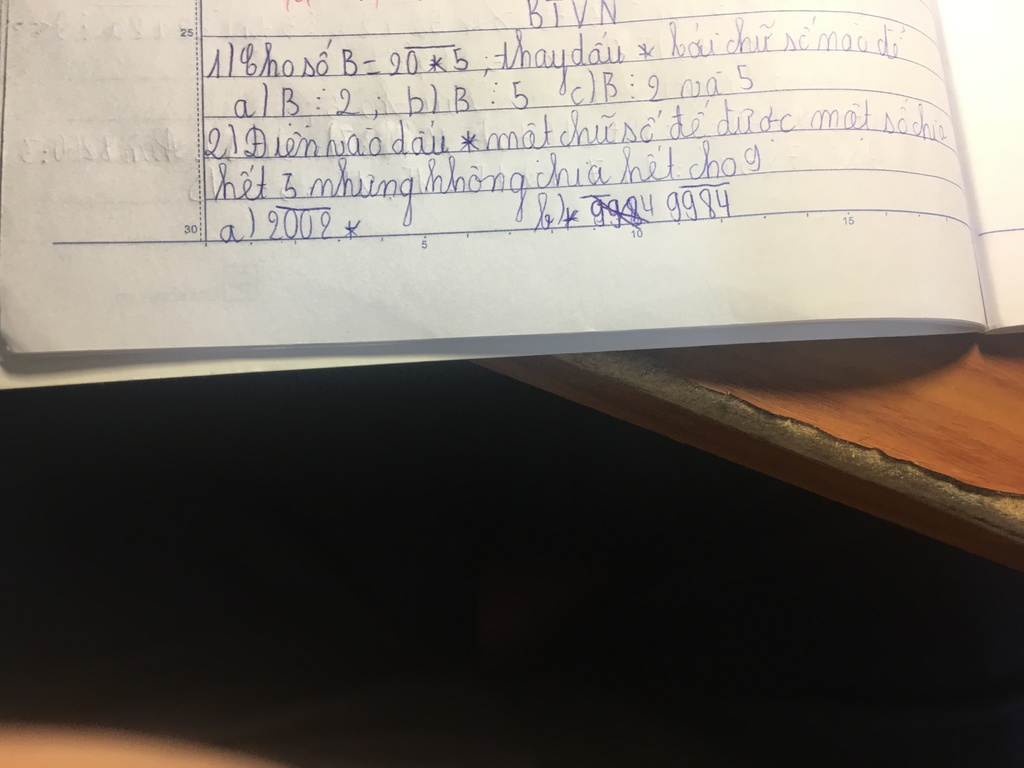 BTVN
25
1) Cho số B = 20*5 ; thay dấu * bởi chữ số nào để
a) B ⋮ 2 ; b) B ⋮ 5 c) B ⋮ 2 và 5
2) Điền vào dấu * một chữ số để được một số chia
hết 3 nhưng không chia hết cho 9
30 a) 2002* b) * 9984
5 10 15